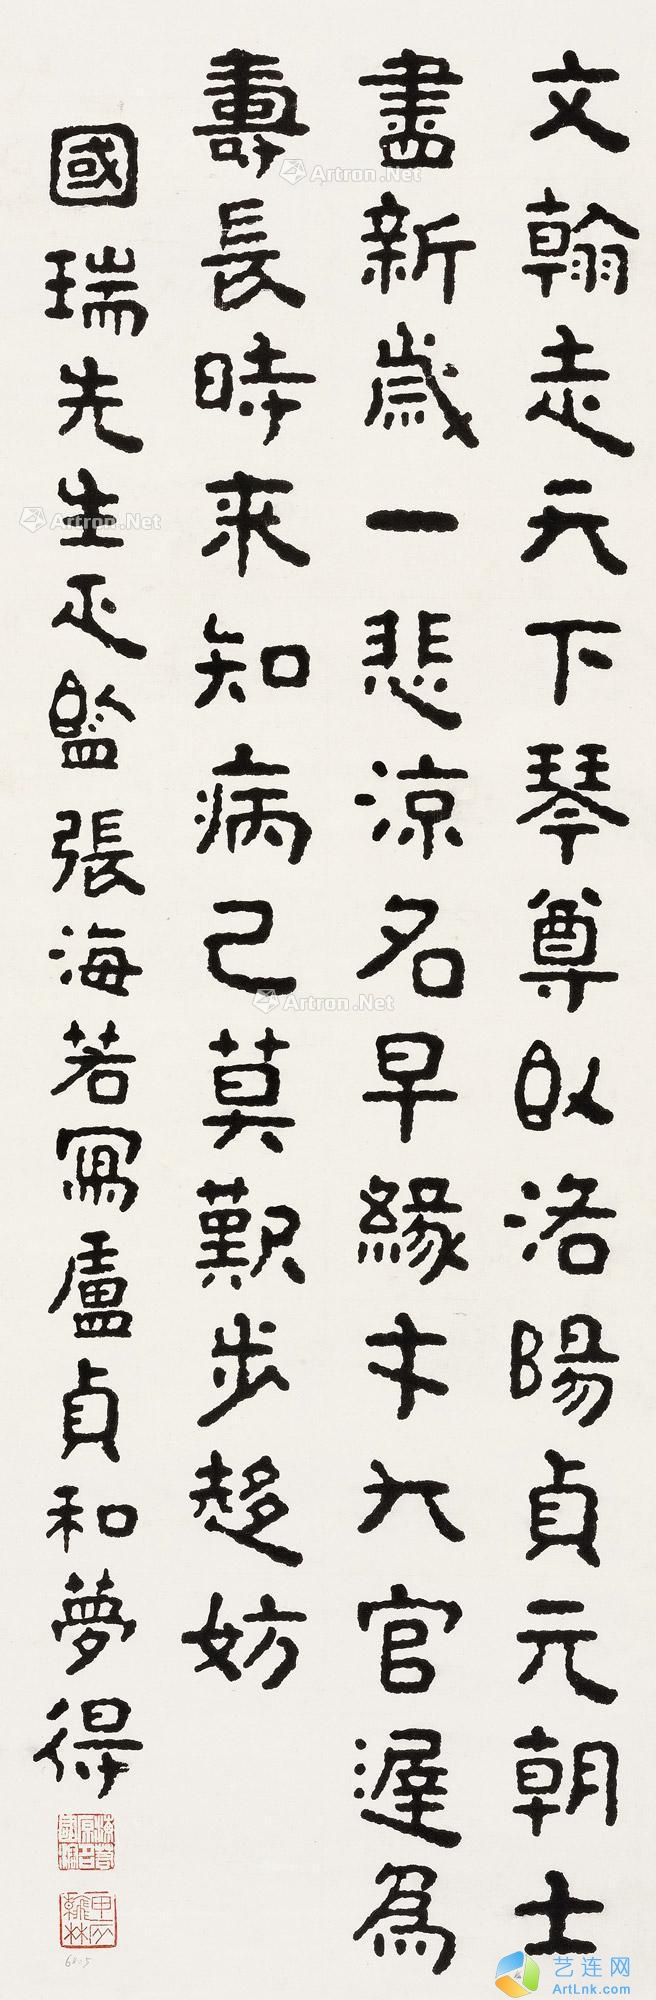 文翰走天下琴尊卧洛陽貞元朝士
盡新歲一悲涼名早緣才大官遲為
壽長時來知病已莫歎步趍妨
國瑞先生正監張海若寫盧貞和夢得
Artron.Net
Artron.Net
Artron.Net
艺连网
ArtLnk.com